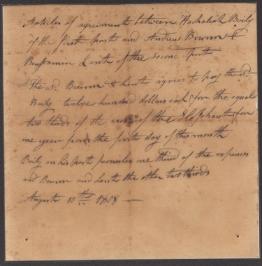 Articles of agreement between Hackaliah Baily
of the first part and Andrew Brown &
Benjamin Lent of the second part
The sd. Brown & Lent agrees to pay the sd.
Baily twelve hundred dollars each for the equal
two thirds of the use of the Elephant for
one year from the first day of this month
Baily on his part furnishes one third of the expenses
and Brown and Lent the other two thirds
August 13th 1808